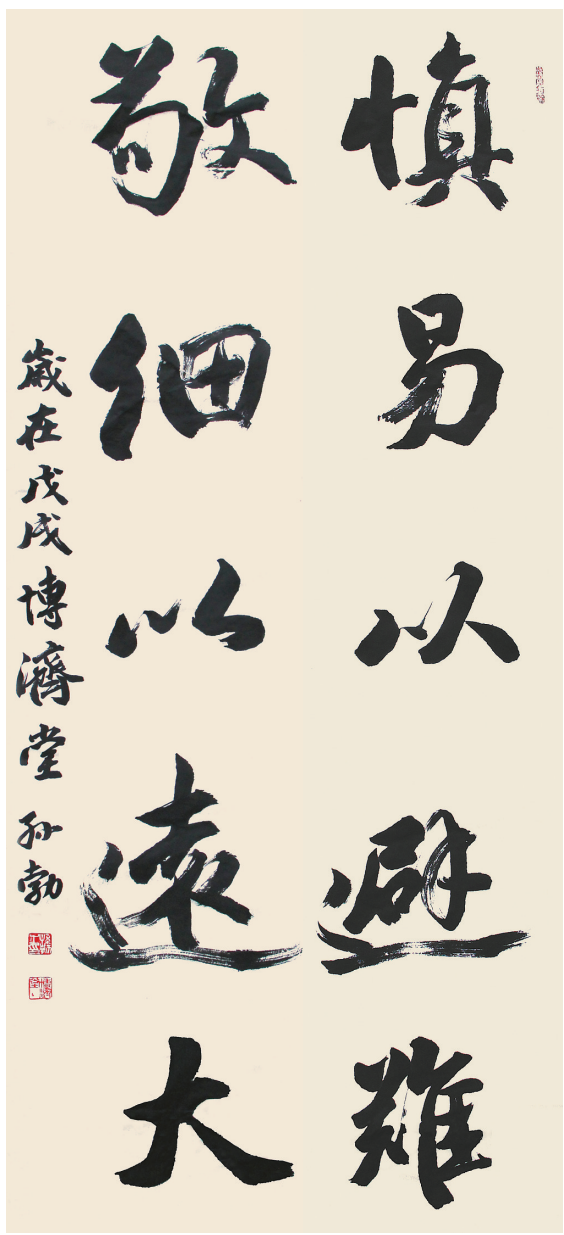 慎易以避難
敬細以遠大
歲在戊戌博濟堂孫勃